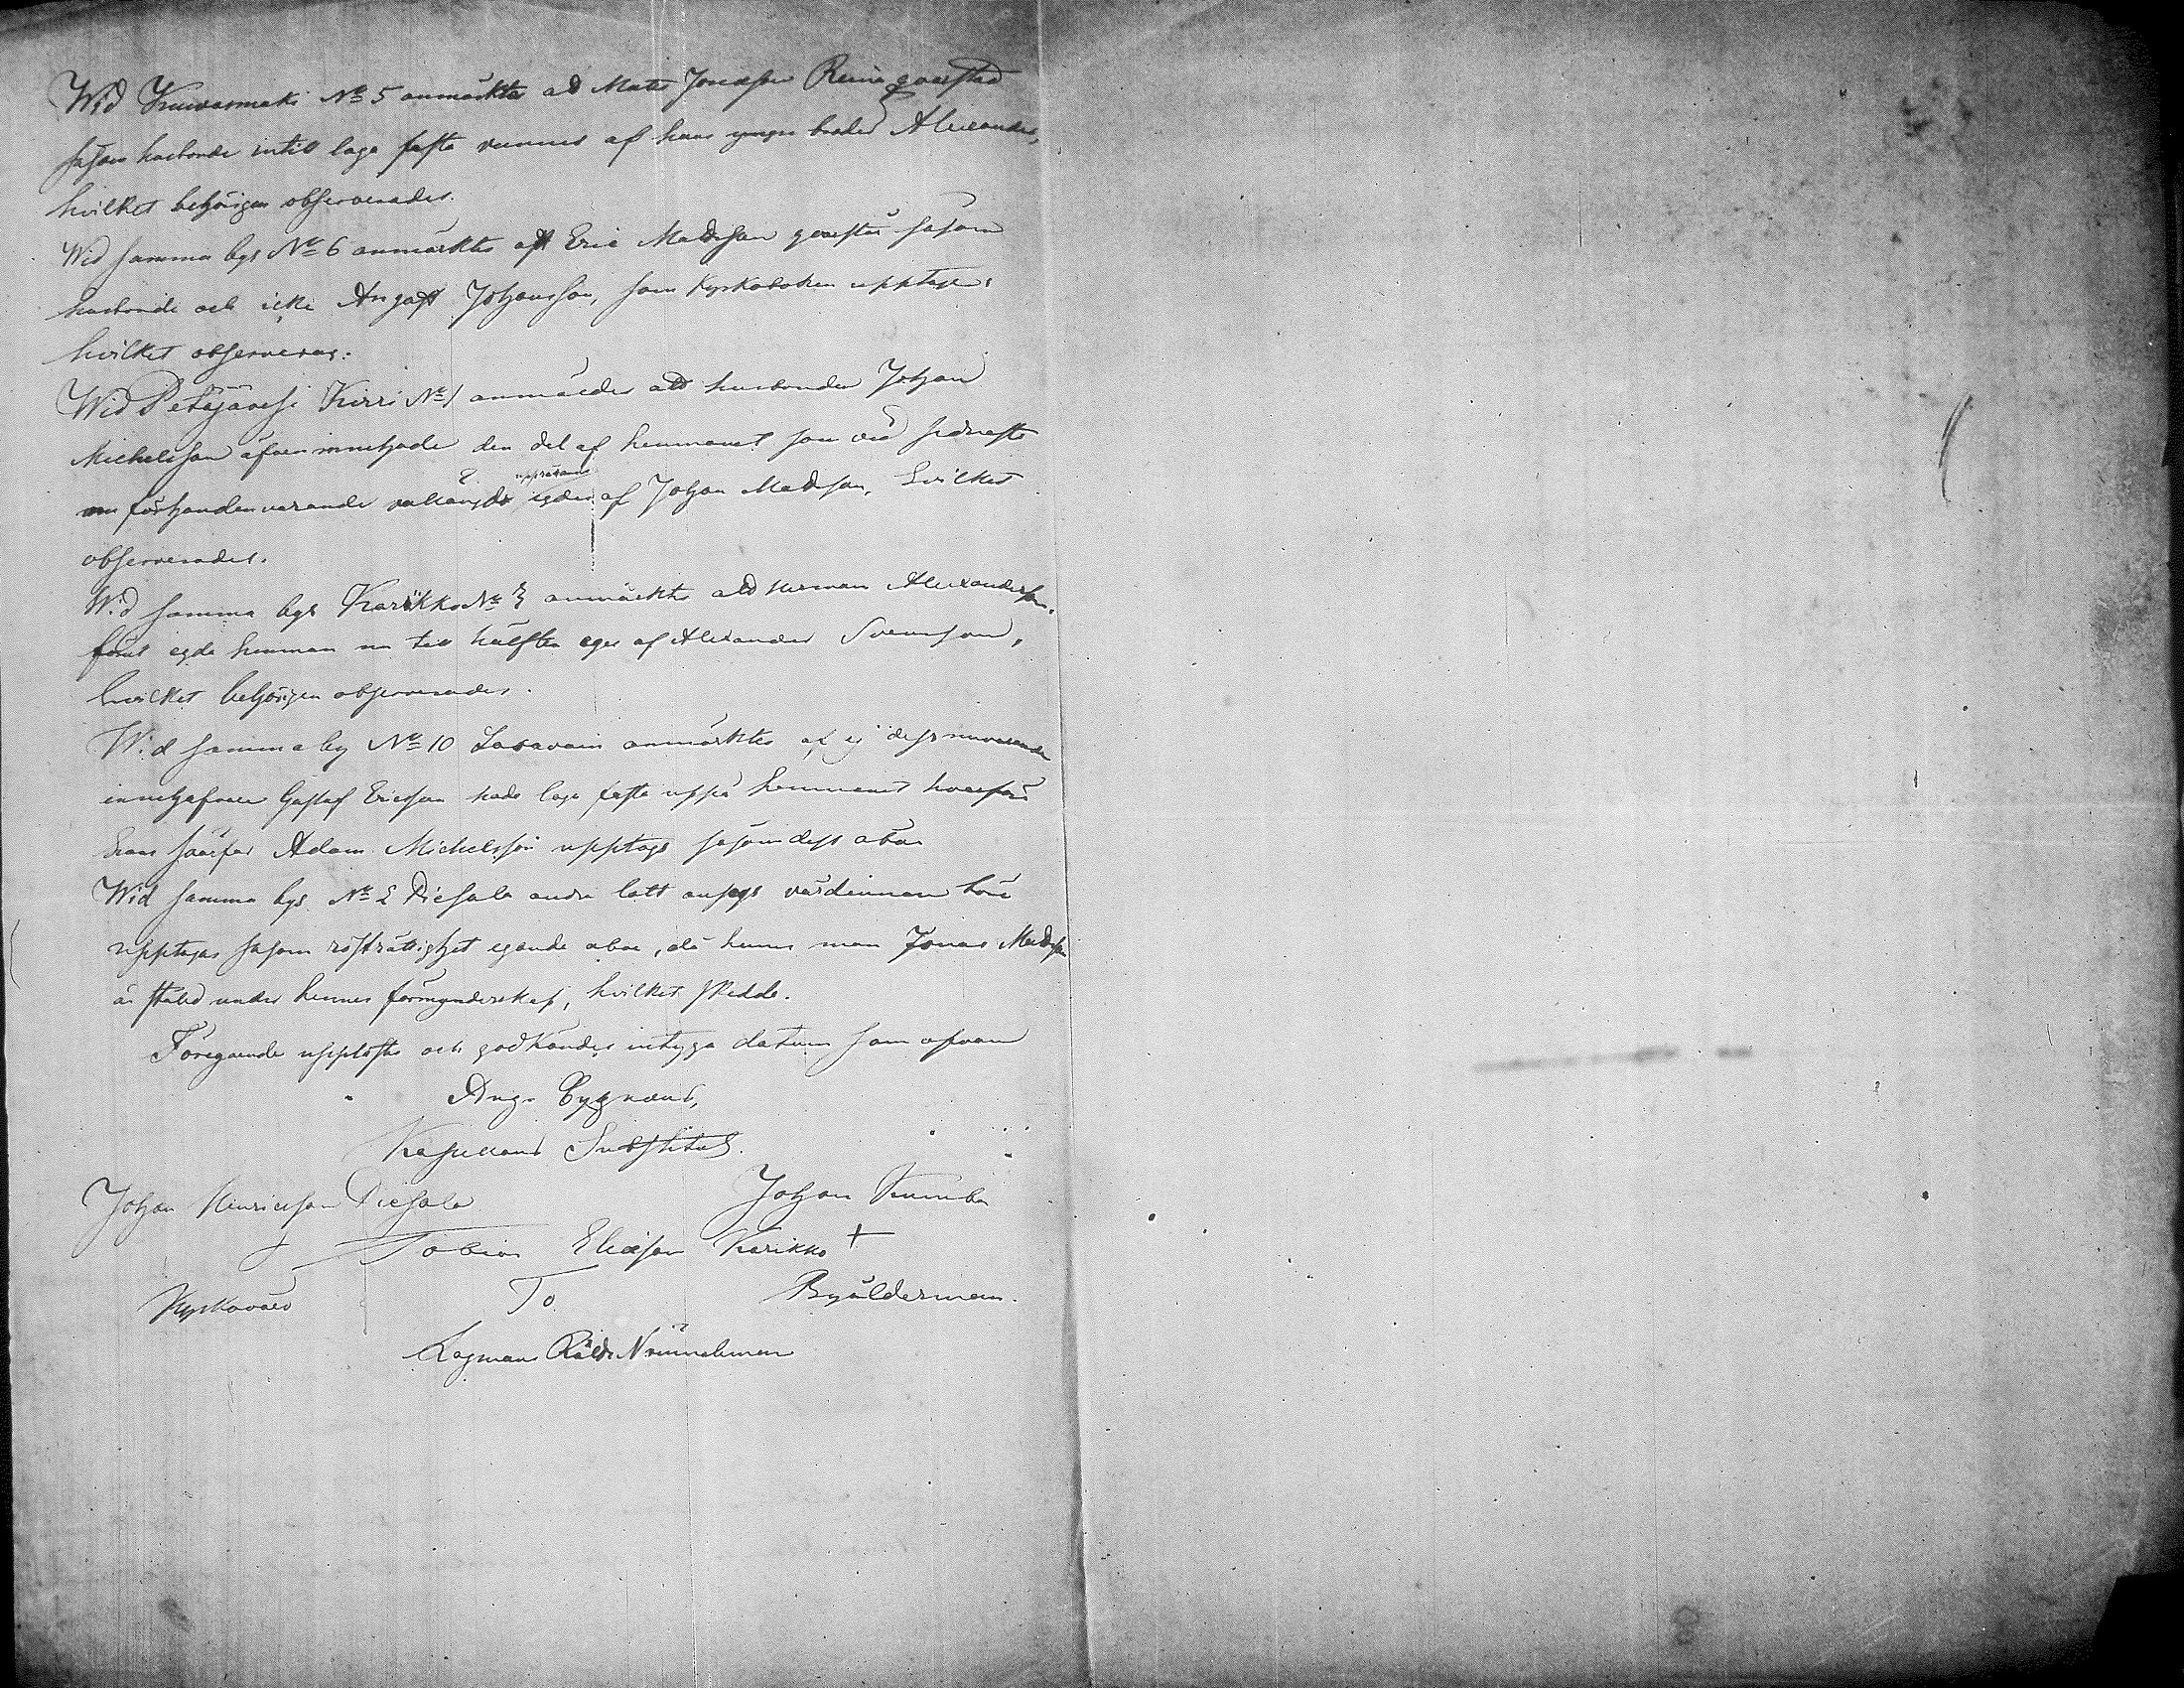 Wid Kuivasmäki No 5 anmärktes att Mats Josefsson Reini qvarstod
såsom husbonde intill laga fasta vunnits af hans yngre broder Alexander,
hvilket behörigen observerades.
Wid samma bys No 6 anmärktes att Eric Madsson qvarstår såsom
husbonde och icke August Johansson, som Kyrkoboken upptager
hvilket observeras.
Wid Petäjävesi Kirri No 1 anmäldes att husbonden Johan
Michelsson äfven innehade den del af hemmanet som vid sednaste
förhandenvarande vallängds upprättande egdes af Johan Madsson, hvilket
observerades.
Wid samma bys Karikko No anmärktes att Herman Alexandersson
förut egde hemman nu till hälften eges af Alexander Svensson,
hvilket behörigen observerades.
Wid samma by No 10 anmärktes at ej dess nuvarande
innehafvare Gustaf Ericsson hade laga fasta uppå hemmanet hvarföre
hans svärfar Adam Michelsson upptogs såsom dess åbo
Wid samma bys No 2 Piesala andra lott ansågs värdinnan böra
upptagas såsom rösträttighet egande åbo, då hennes man Jonas Madsson
är stäld under hennes förmynderskap, hvilket skedde.
Föregående upplästes och godkändes intyga datum som ofvan
Aug. Cygnæus,
Kapellans Substitut.
Johan Hinricsson Piesala Johan
Tobias Eliasson Karikko +
Kyrkovärd To Byålderman.
Lagmans Rätts Nämndeman